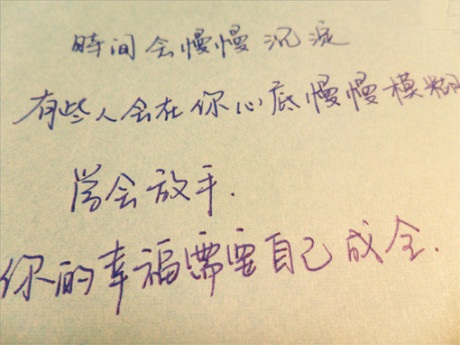 时间会慢慢沉淀
有些人会在你心底慢慢模糊
学会放手.
你的幸福需要自己成全.